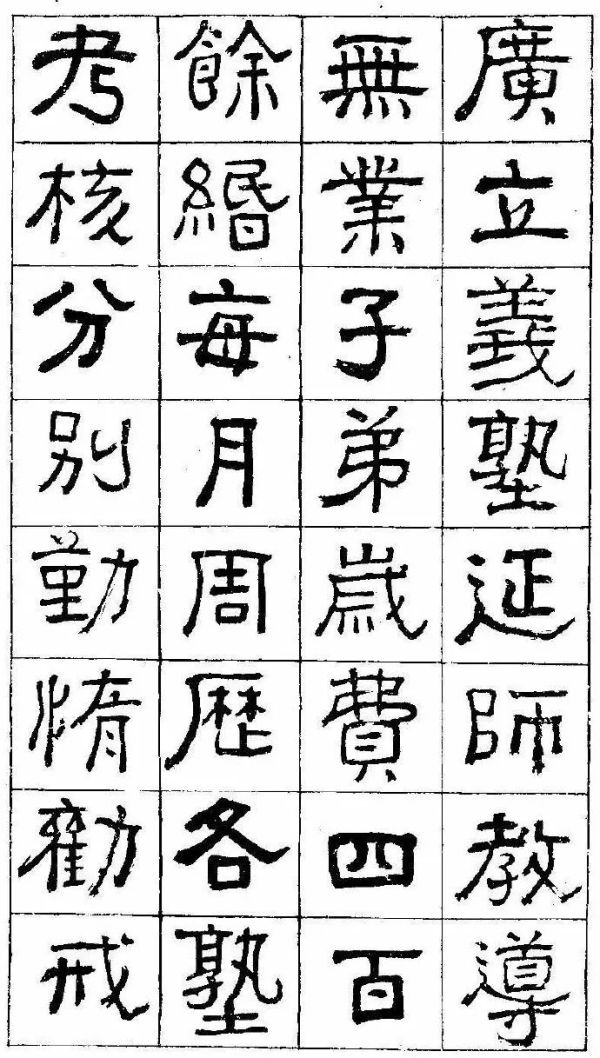 廣立義塾延師教導
無業子弟歲費四百
餘緡每月周歷各塾
考核分別勤惰勸戒